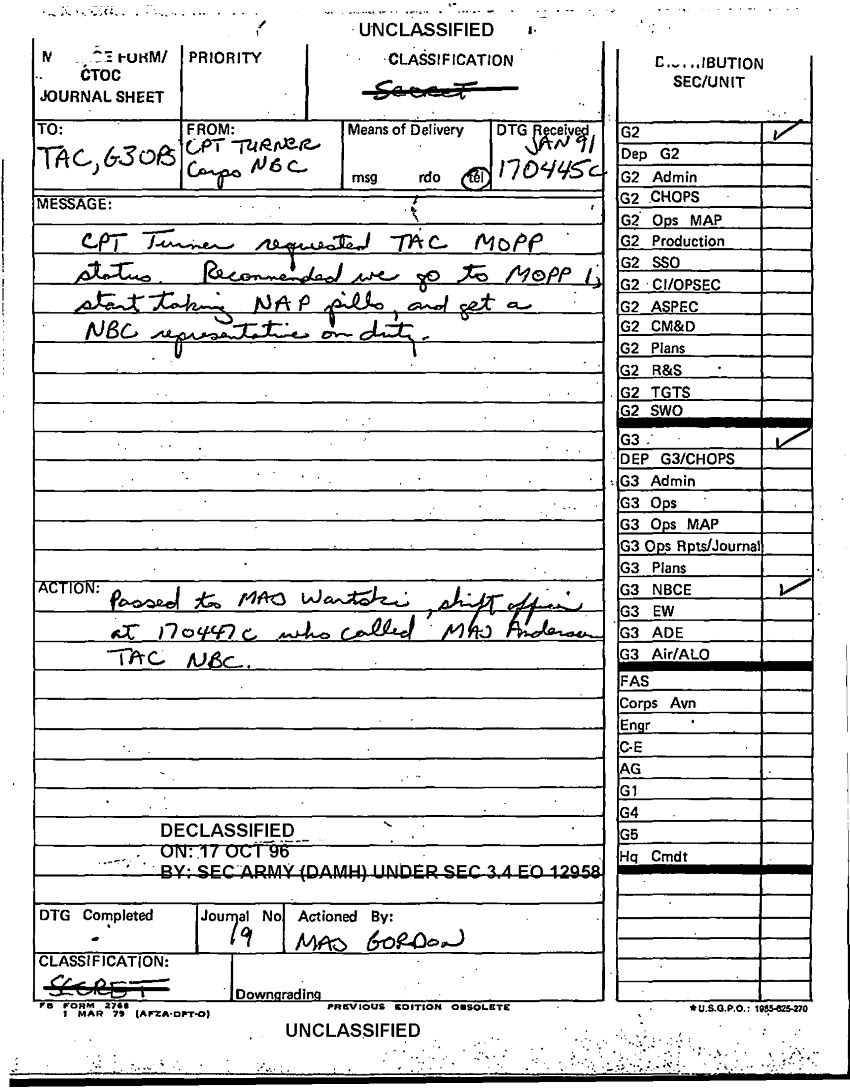 UNCLASSIFIED
FORM/
CTOC
JOURNAL SHEET
PRIORITY
CLASSIFICATION
Secret
DISTRIBUTION
SEC/UNIT
TO:
TAC, G3OPS
FROM:
CPT TURNER
Corps NBC
Means of Delivery
msg rdo tel
DTG Received
JAN 91
170445C
MESSAGE:
CPT Turner requested TAC MOPP
status. Recommended we go to MOPP 1,
start taking NAP pills, and get a
NBC representative on duty.
ACTION:
Passed to MAJ Wartski, shift officer
at 170447C who called MAJ Anderson
TAC NBC.
DECLASSIFIED
ON: 17 OCT 96
BY: SEC ARMY (DAMH) UNDER SEC 3.4 EO 12958
DTG Completed
-
Journal No
19
Actioned By:
MAJ GORDON
CLASSIFICATION:
SECRET
Downgrading
FB FORM 2768
1 MAR 79 (AFZA-DPT-O)
PREVIOUS EDITION OBSOLETE
UNCLASSIFIED
G2 ✓
Dep G2
G2 Admin
G2 CHOPS
G2 Ops MAP
G2 Production
G2 SSO
G2 CI/OPSEC
G2 ASPEC
G2 CM&D
G2 Plans
G2 R&S
G2 TGTS
G2 SWO
G3 ✓
DEP G3/CHOPS
G3 Admin
G3 Ops
G3 Ops MAP
G3 Ops Rpts/Journal
G3 Plans
G3 NBCE ✓
G3 EW
G3 ADE
G3 Air/ALO
FAS
Corps Avn
Engr
C-E
AG
G1
G4
G5
Hq Cmdt
*U.S.G.P.O.: 1985-625-270